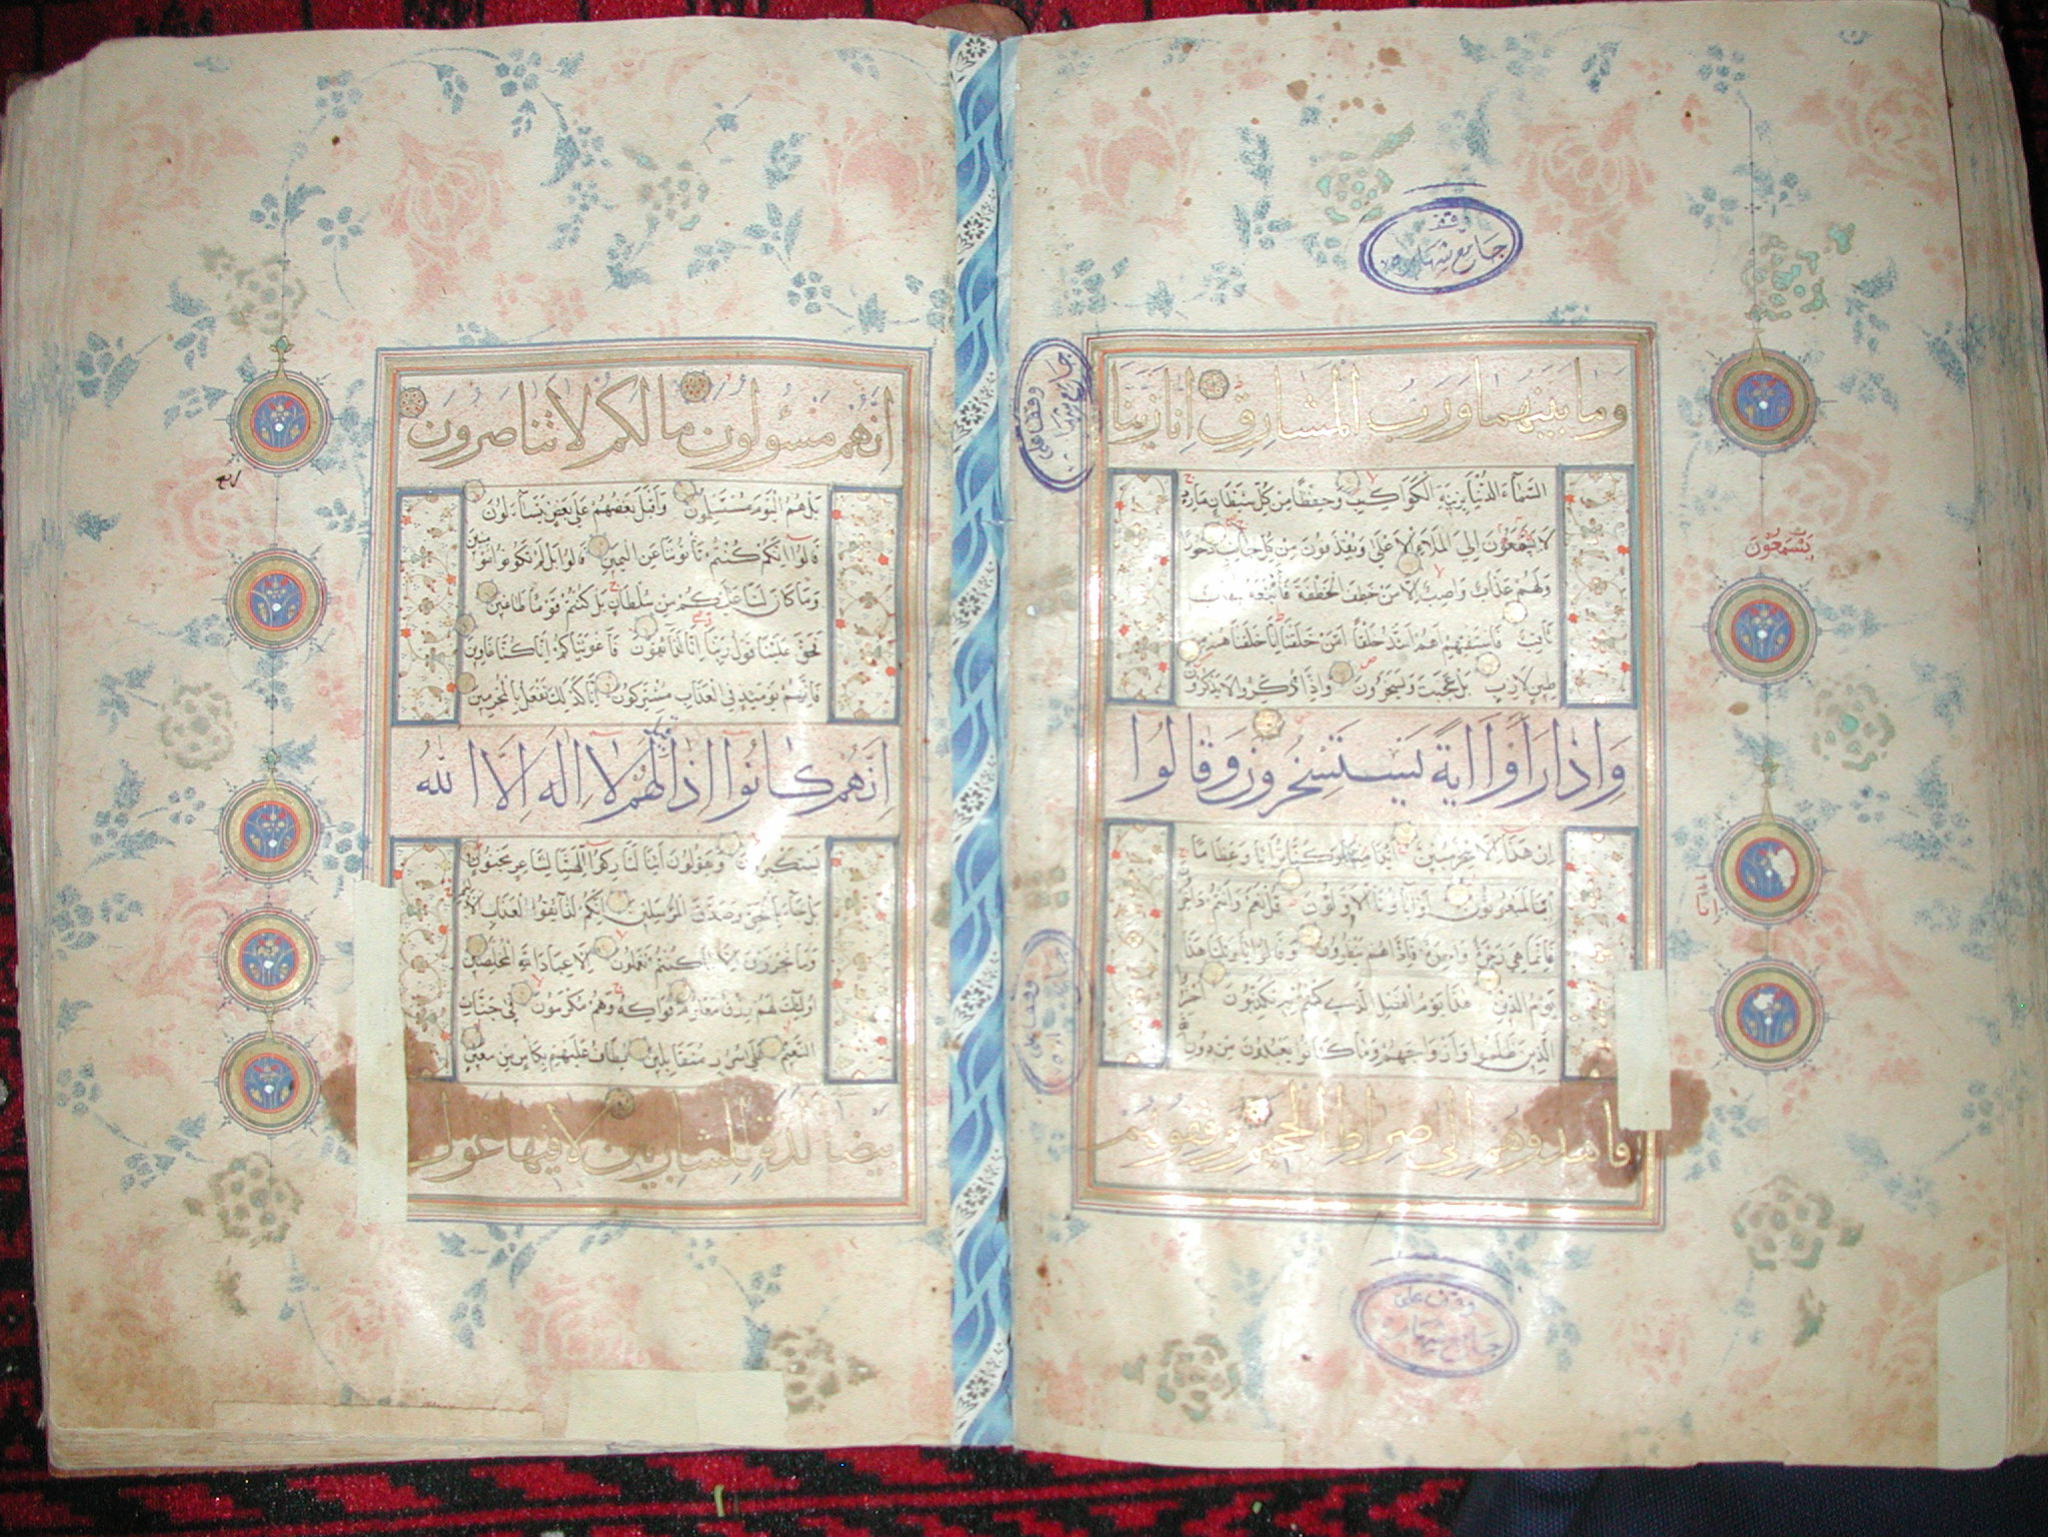 وقف
جامع
وما بينهما ورب المشارق انا زينا
السماء الدنيا بزينة الكواكب وحفظا من كل شيطان مارد
لا يسمعون الى الملاء الاعلى ويقذفون من كل جانب دحورا
يتسمعون
ولهم عذاب واصب الا من خطف الخطفة فأتبعه شهاب
ثاقب فاستفتهم اهم اشد خلقا امن خلقنا انا خلقناهم من
طين لازب بل عجبت ويسخرون واذا ذكروا لا يذكرون
واذا راوا اية يستسخرون وقالوا
ان هذا الا سحر مبين ائذا متنا وكنا ترابا وعظاما
ائنا لمبعوثون اواباؤنا الاولون قل نعم وانتم داخرون
فانما هي زجرة واحدة فاذا هم ينظرون وقالوا يا ويلنا هذا
يوم الدين هذا يوم الفصل الذي كنتم به تكذبون احشروا
الذين ظلموا وازواجهم وما كانوا يعبدون من دون
فاهدوهم الى صراط الجحيم وقفوهم
وقف على
جامع
وقف على
جامع
انهم مسؤلون ما لكم لا تناصرون
بل هم اليوم مستسلمون واقبل بعضهم على بعض يتساءلون
قالوا انكم كنتم تأتوننا عن اليمين قالوا بل لم تكونوا مؤمنين
وما كان لنا عليكم من سلطان بل كنتم قوما طاغين
فحق علينا قول ربنا انا لذائقون فاغويناكم انا كنا غاوين
فانهم يومئذ في العذاب مشتركون انا كذلك نفعل بالمجرمين
انهم كانوا اذا قيل لهم لا اله الا الله
يستكبرون ويقولون ائنا لتاركوا الهتنا لشاعر مجنون
بل جاء بالحق وصدق المرسلين انكم لذائقوا العذاب الاليم
وما تجزون الا ما كنتم تعملون الا عباد الله المخلصين
اولئك لهم رزق معلوم فواكه وهم مكرمون في جنات
النعيم على سرر متقابلين يطاف عليهم بكأس من معين
بيضا لذة للشاربين لا فيها غول